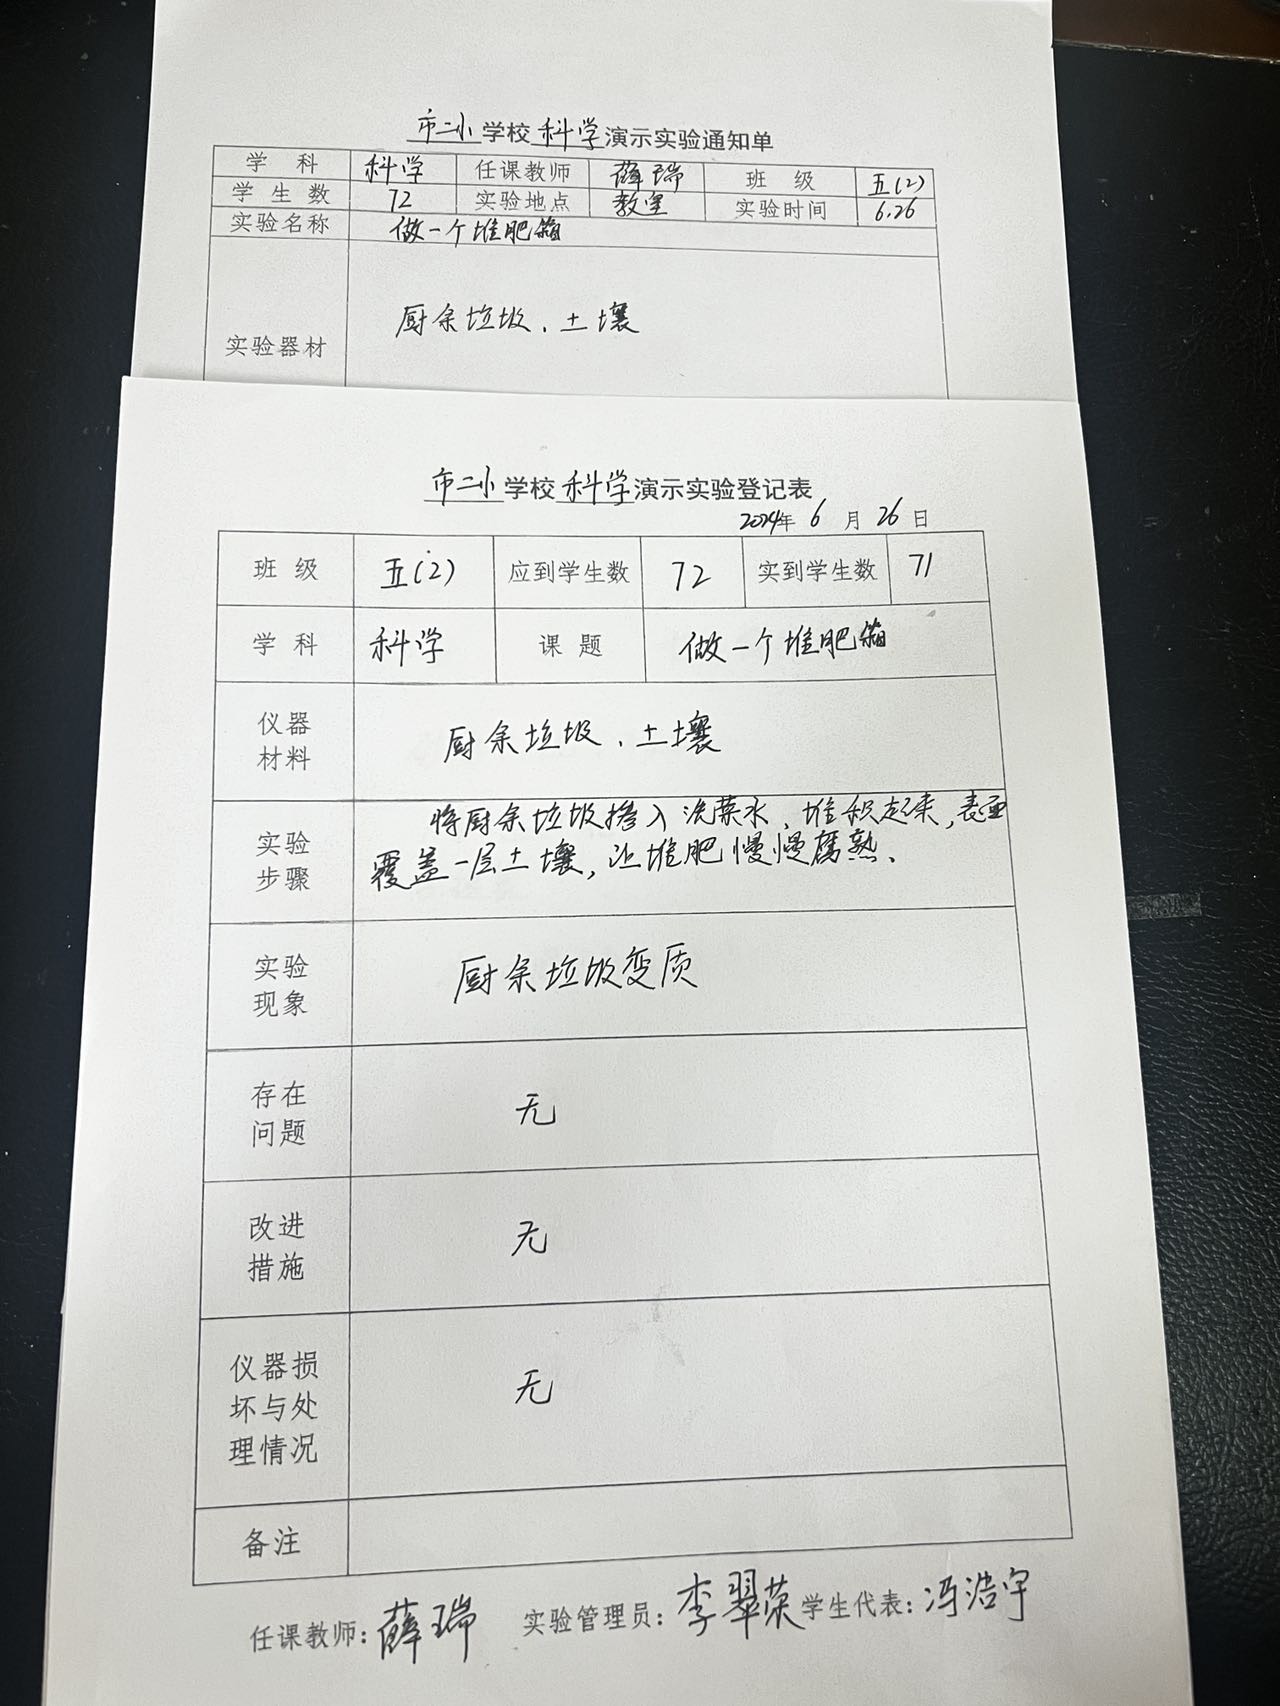 市二小学校科学演示实验通知单
学 科 科学 任课教师 薛瑞 班 级 五(2)
学 生 数 72 实验地点 教室 实验时间 6.26
实验名称 做一个堆肥箱
实验器材 厨余垃圾、土壤
市二小学校科学演示实验登记表
2024年 6 月 26 日
班 级 五(2) 应到学生数 72 实到学生数 71
学 科 科学 课 题 做一个堆肥箱
仪器
材料
厨余垃圾、土壤
实验
步骤
将厨余垃圾掺入洗菜水,堆积起来,表面
覆盖一层土壤,让堆肥慢慢腐熟、
实验
现象
厨余垃圾变质
存在
问题
无
改进
措施
无
仪器损
坏与处
理情况
无
备注
任课教师:薛瑞 实验管理员:李翠荣 学生代表:冯浩宇